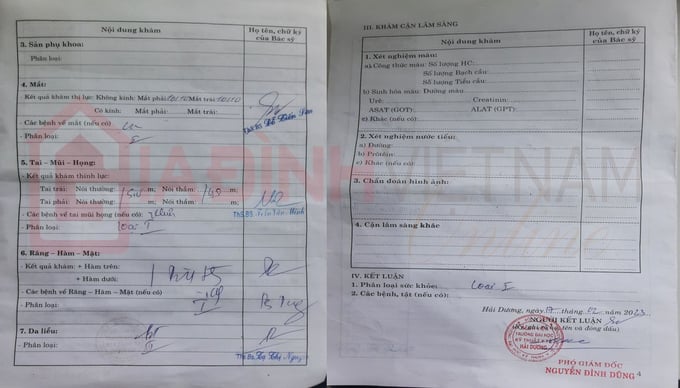 Nội dung khám
Họ tên, chữ ký của Bác sỹ
3. Sản phụ khoa:
Phân loại:
4. Mắt:
Kết quả khám thị lực: Không kính: Mắt phải: 10/10 Mắt trái: 10/10
Có kính: Mắt phải: Mắt trái:
- Các bệnh về mắt (nếu có)
- Phân loại:
5. Tai – Mũi – Họng:
- Kết quả khám thính lực:
Tai trái: Nói thường: m; Nói thầm: m;
Tai phải: Nói thường: m; Nói thầm: m;
- Các bệnh về tai mũi họng (nếu có):
- Phân loại: Loại I
6. Răng – Hàm – Mặt:
- Kết quả khám: + Hàm trên:
+ Hàm dưới:
- Các bệnh về Răng – Hàm – Mặt (nếu có)
- Phân loại:
7. Da liễu:
- Phân loại:
GIA ĐÌNH VIỆT NAM
III. KHÁM CẬN LÂM SÀNG
Nội dung khám
Họ tên, chữ ký của Bác sỹ
1. Xét nghiệm máu:
a) Công thức máu: Số lượng HC:
Số lượng Bạch cầu:
Số lượng Tiểu cầu:
b) Sinh hóa máu: Đường máu:
Urê: Creatinin:
ASAT (GOT): ALAT (GPT):
c) Khác (nếu có):
2. Xét nghiệm nước tiểu:
a) Đường:
b) Prôtêin:
c) Khác (nếu có):
3. Chẩn đoán hình ảnh:
4. Cận lâm sàng khác
IV. KẾT LUẬN
1. Phân loại sức khỏe: Loại I
2. Các bệnh, tật (nếu có):
Hải Dương, ngày tháng năm 2023
NGƯỜI KẾT LUẬN
TRƯỜNG ĐẠI HỌC
KỸ THUẬT Y TẾ
HẢI DƯƠNG
PHÓ GIÁM ĐỐC
NGUYỄN ĐÌNH DŨNG
4